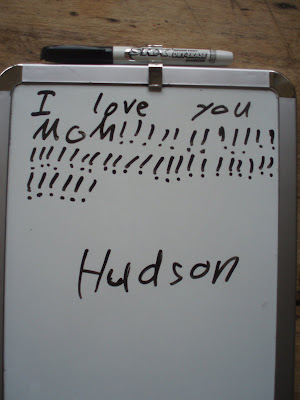 I love you
MOM!!!!!!!!!!!!
!!!!!!!!!!!!!!!!!!!!!!!!
!!!!!!!
Hudson